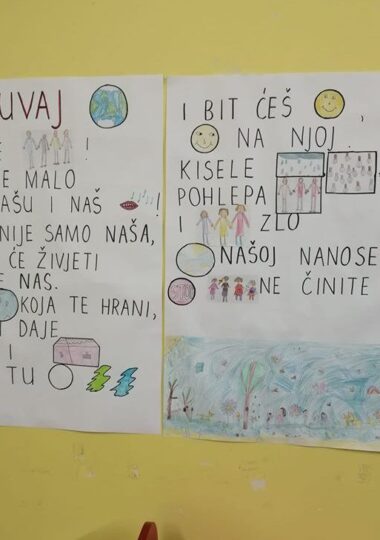 UVAJ
!
E MALO
AŠU I NAŠ !
NIJE SAMO NAŠA,
ĆE ŽIVJETI
E NAS.
KOJA TE HRANI,
I DAJE
I
TU
I BIT ĆEŠ ,
NA NJOJ!
KISELE
POHLEPA
I ZLO
NAŠOJ NANOSE
STOP NE ČINITE